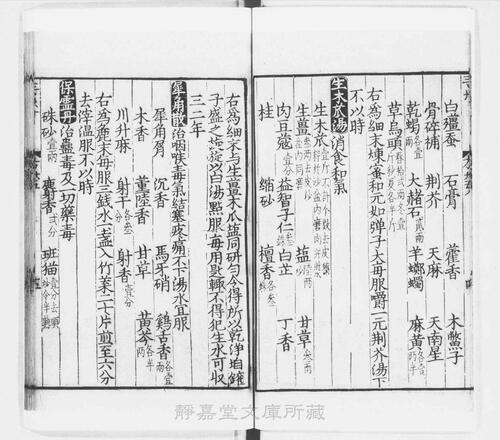 白殭蚕 石膏 藿香 木鱉子
骨碎補 荆芥 天麻 天南星
乾蝎各壹兩 大赭石貳兩 羊躑躅 麻黄各壹兩半
草烏頭
右為細末煉蜜和元如弹子大每服嚼一元荆芥湯下
不以時
生木瓜湯消食和氣
生木瓜
生薑 鹽 甘草
肉豆蔻 益智子仁 白芷
桂 縮砂 檀香 丁香
右為細末与生薑木瓜鹽同研勻令得所以乾淨
子盛之 以白湯點服每用匙輙不得犯生水可収
三二年
犀角散治咽喉毒氣結塞疼痛不下湯水宜服
犀角屑 沉香 馬牙硝 鷄舌香各壹兩
木香 董陸香 甘草 黄芩各半兩
川升麻 射干各叁 射香壹分
右為麁末每服三錢水一盞入竹葉二十片煎至六分
去滓溫服不以時
保靈丹治蠱毒及一切藥毒
硃砂壹兩 麝香 班猫
靜嘉堂文庫所藏